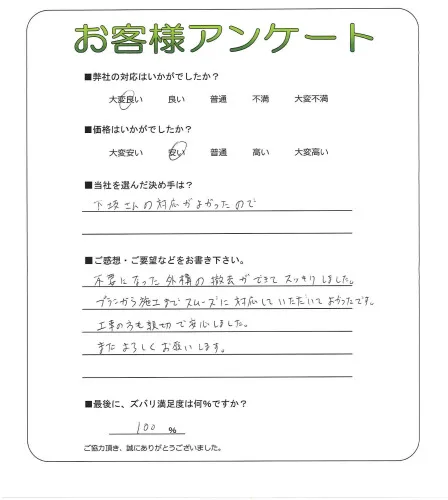 お客様アンケート
■弊社の対応はいかがでしたか？
大変良い 良い 普通 不満 大変不満
■価格はいかがでしたか？
大変安い 安い 普通 高い 大変高い
■当社を選んだ決め手は？
下坂さんの対応がよかったので
■ご感想・ご要望などをお書き下さい。
不要になった外構の撤去ができてスッキリしました。
プランから施工までスムーズに対応していただいてよかったです。
工事の方も親切で安心しました。
またよろしくお願いします。
■最後に、ズバリ満足度は何%ですか？
100 %
ご協力頂き、誠にありがとうございました。